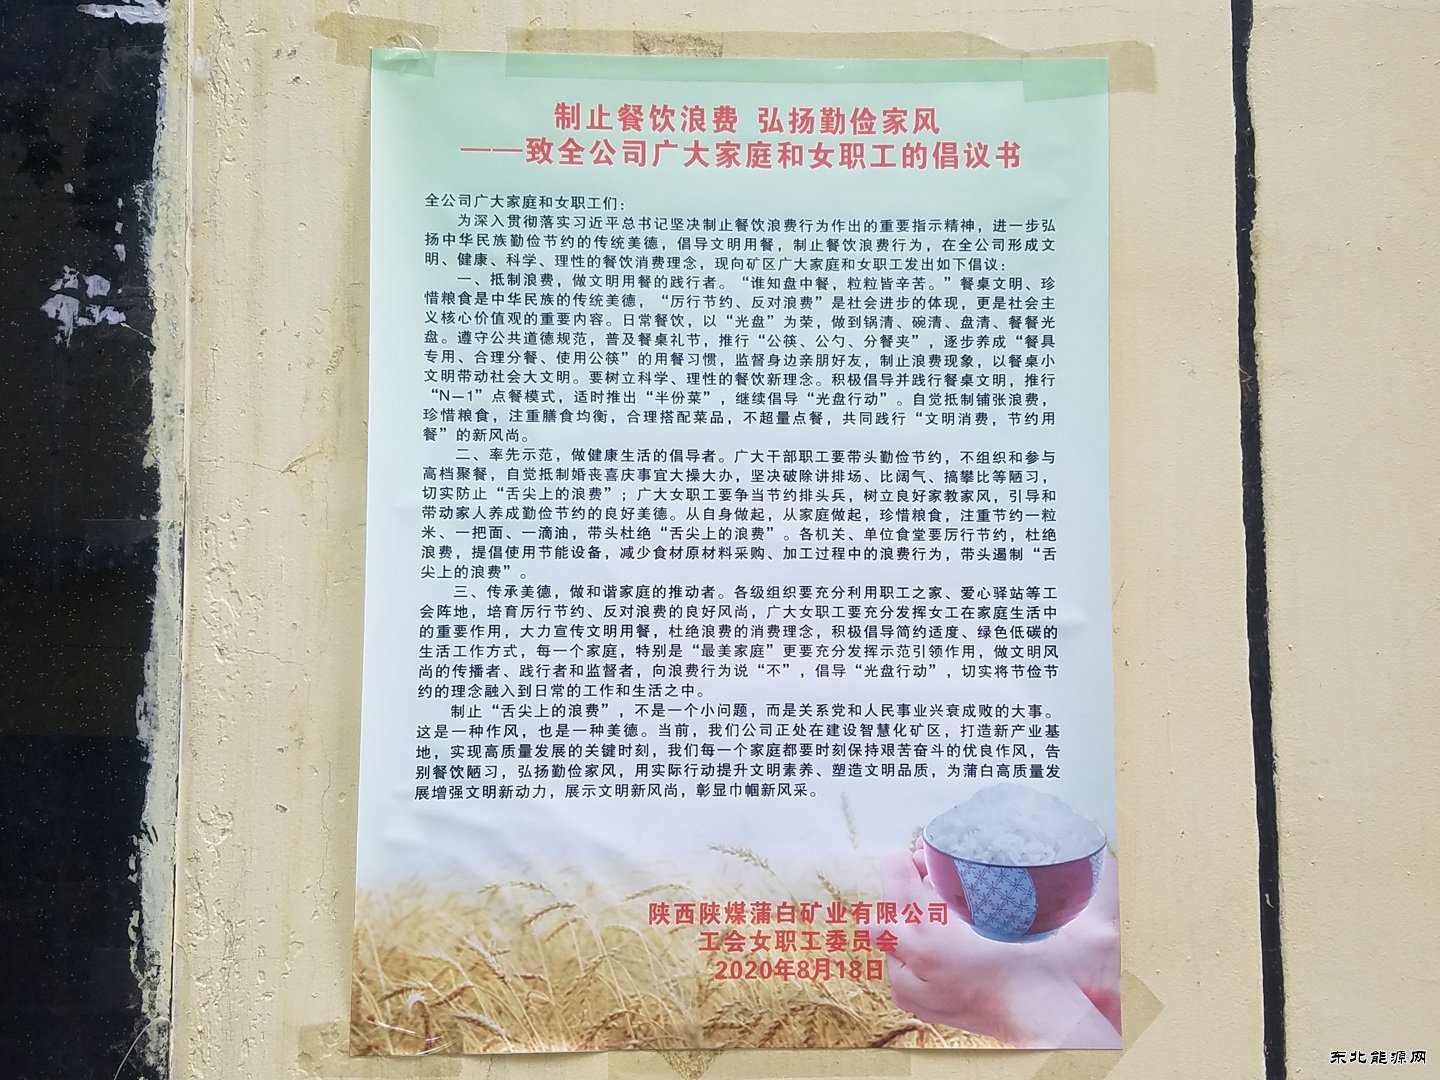 制止餐饮浪费 弘扬勤俭家风
——致全公司广大家庭和女职工的倡议书
全公司广大家庭和女职工们：
为深入贯彻落实习近平总书记坚决制止餐饮浪费行为作出的重要指示精神，进一步弘
扬中华民族勤俭节约的传统美德，倡导文明用餐，制止餐饮浪费行为，在全公司形成文
明、健康、科学、理性的餐饮消费理念，现向矿区广大家庭和女职工发出如下倡议：
一、抵制浪费，做文明用餐的践行者。“谁知盘中餐，粒粒皆辛苦。”餐桌文明、珍
惜粮食是中华民族的传统美德，“厉行节约、反对浪费”是社会进步的体现，更是社会主
义核心价值观的重要内容。日常餐饮，以“光盘”为荣，做到锅清、碗清、盘清、餐餐光
盘。遵守公共道德规范，普及餐桌礼节，推行“公筷、公勺、分餐夹”，逐步养成“餐具
专用、合理分餐、使用公筷”的用餐习惯，监督身边亲朋好友，制止浪费现象，以餐桌小
文明带动社会大文明。要树立科学、理性的餐饮新理念。积极倡导并践行餐桌文明，推行
“N—1”点餐模式，适时推出“半份菜”，继续倡导“光盘行动”。自觉抵制铺张浪费，
珍惜粮食，注重膳食均衡，合理搭配菜品，不超量点餐，共同践行“文明消费，节约用
餐”的新风尚。
二、率先示范，做健康生活的倡导者。广大干部职工要带头勤俭节约，不组织和参与
高档聚餐，自觉抵制婚丧喜庆事宜大操大办，坚决破除讲排场、比阔气、搞攀比等陋习，
切实防止“舌尖上的浪费”；广大女职工要争当节约排头兵，树立良好家教家风，引导和
带动家人养成勤俭节约的良好美德。从自身做起，从家庭做起，珍惜粮食，注重节约一粒
米、一把面、一滴油，带头杜绝“舌尖上的浪费”。各机关、单位食堂要厉行节约，杜绝
浪费，提倡使用节能设备，减少食材原材料采购、加工过程中的浪费行为，带头遏制“舌
尖上的浪费”。
三、传承美德，做和谐家庭的推动者。各级组织要充分利用职工之家、爱心驿站等工
会阵地，培育厉行节约、反对浪费的良好风尚，广大女职工要充分发挥女工在家庭生活中
的重要作用，大力宣传文明用餐，杜绝浪费的消费理念，积极倡导简约适度、绿色低碳的
生活工作方式，每一个家庭，特别是“最美家庭”更要充分发挥示范引领作用，做文明风
尚的传播者、践行者和监督者，向浪费行为说“不”，倡导“光盘行动”，切实将节俭节
约的理念融入到日常的工作和生活之中。
制止“舌尖上的浪费”，不是一个小问题，而是关系党和人民事业兴衰成败的大事。
这是一种作风，也是一种美德。当前，我们公司正处在建设智慧化矿区，打造新产业基
地，实现高质量发展的关键时刻，我们每一个家庭都要时刻保持艰苦奋斗的优良作风，告
别餐饮陋习，弘扬勤俭家风，用实际行动提升文明素养、塑造文明品质，为蒲白高质量发
展增强文明新动力，展示文明新风尚，彰显巾帼新风采。
陕西陕煤蒲白矿业有限公司
工会女职工委员会
2020年8月18日
东北能源网